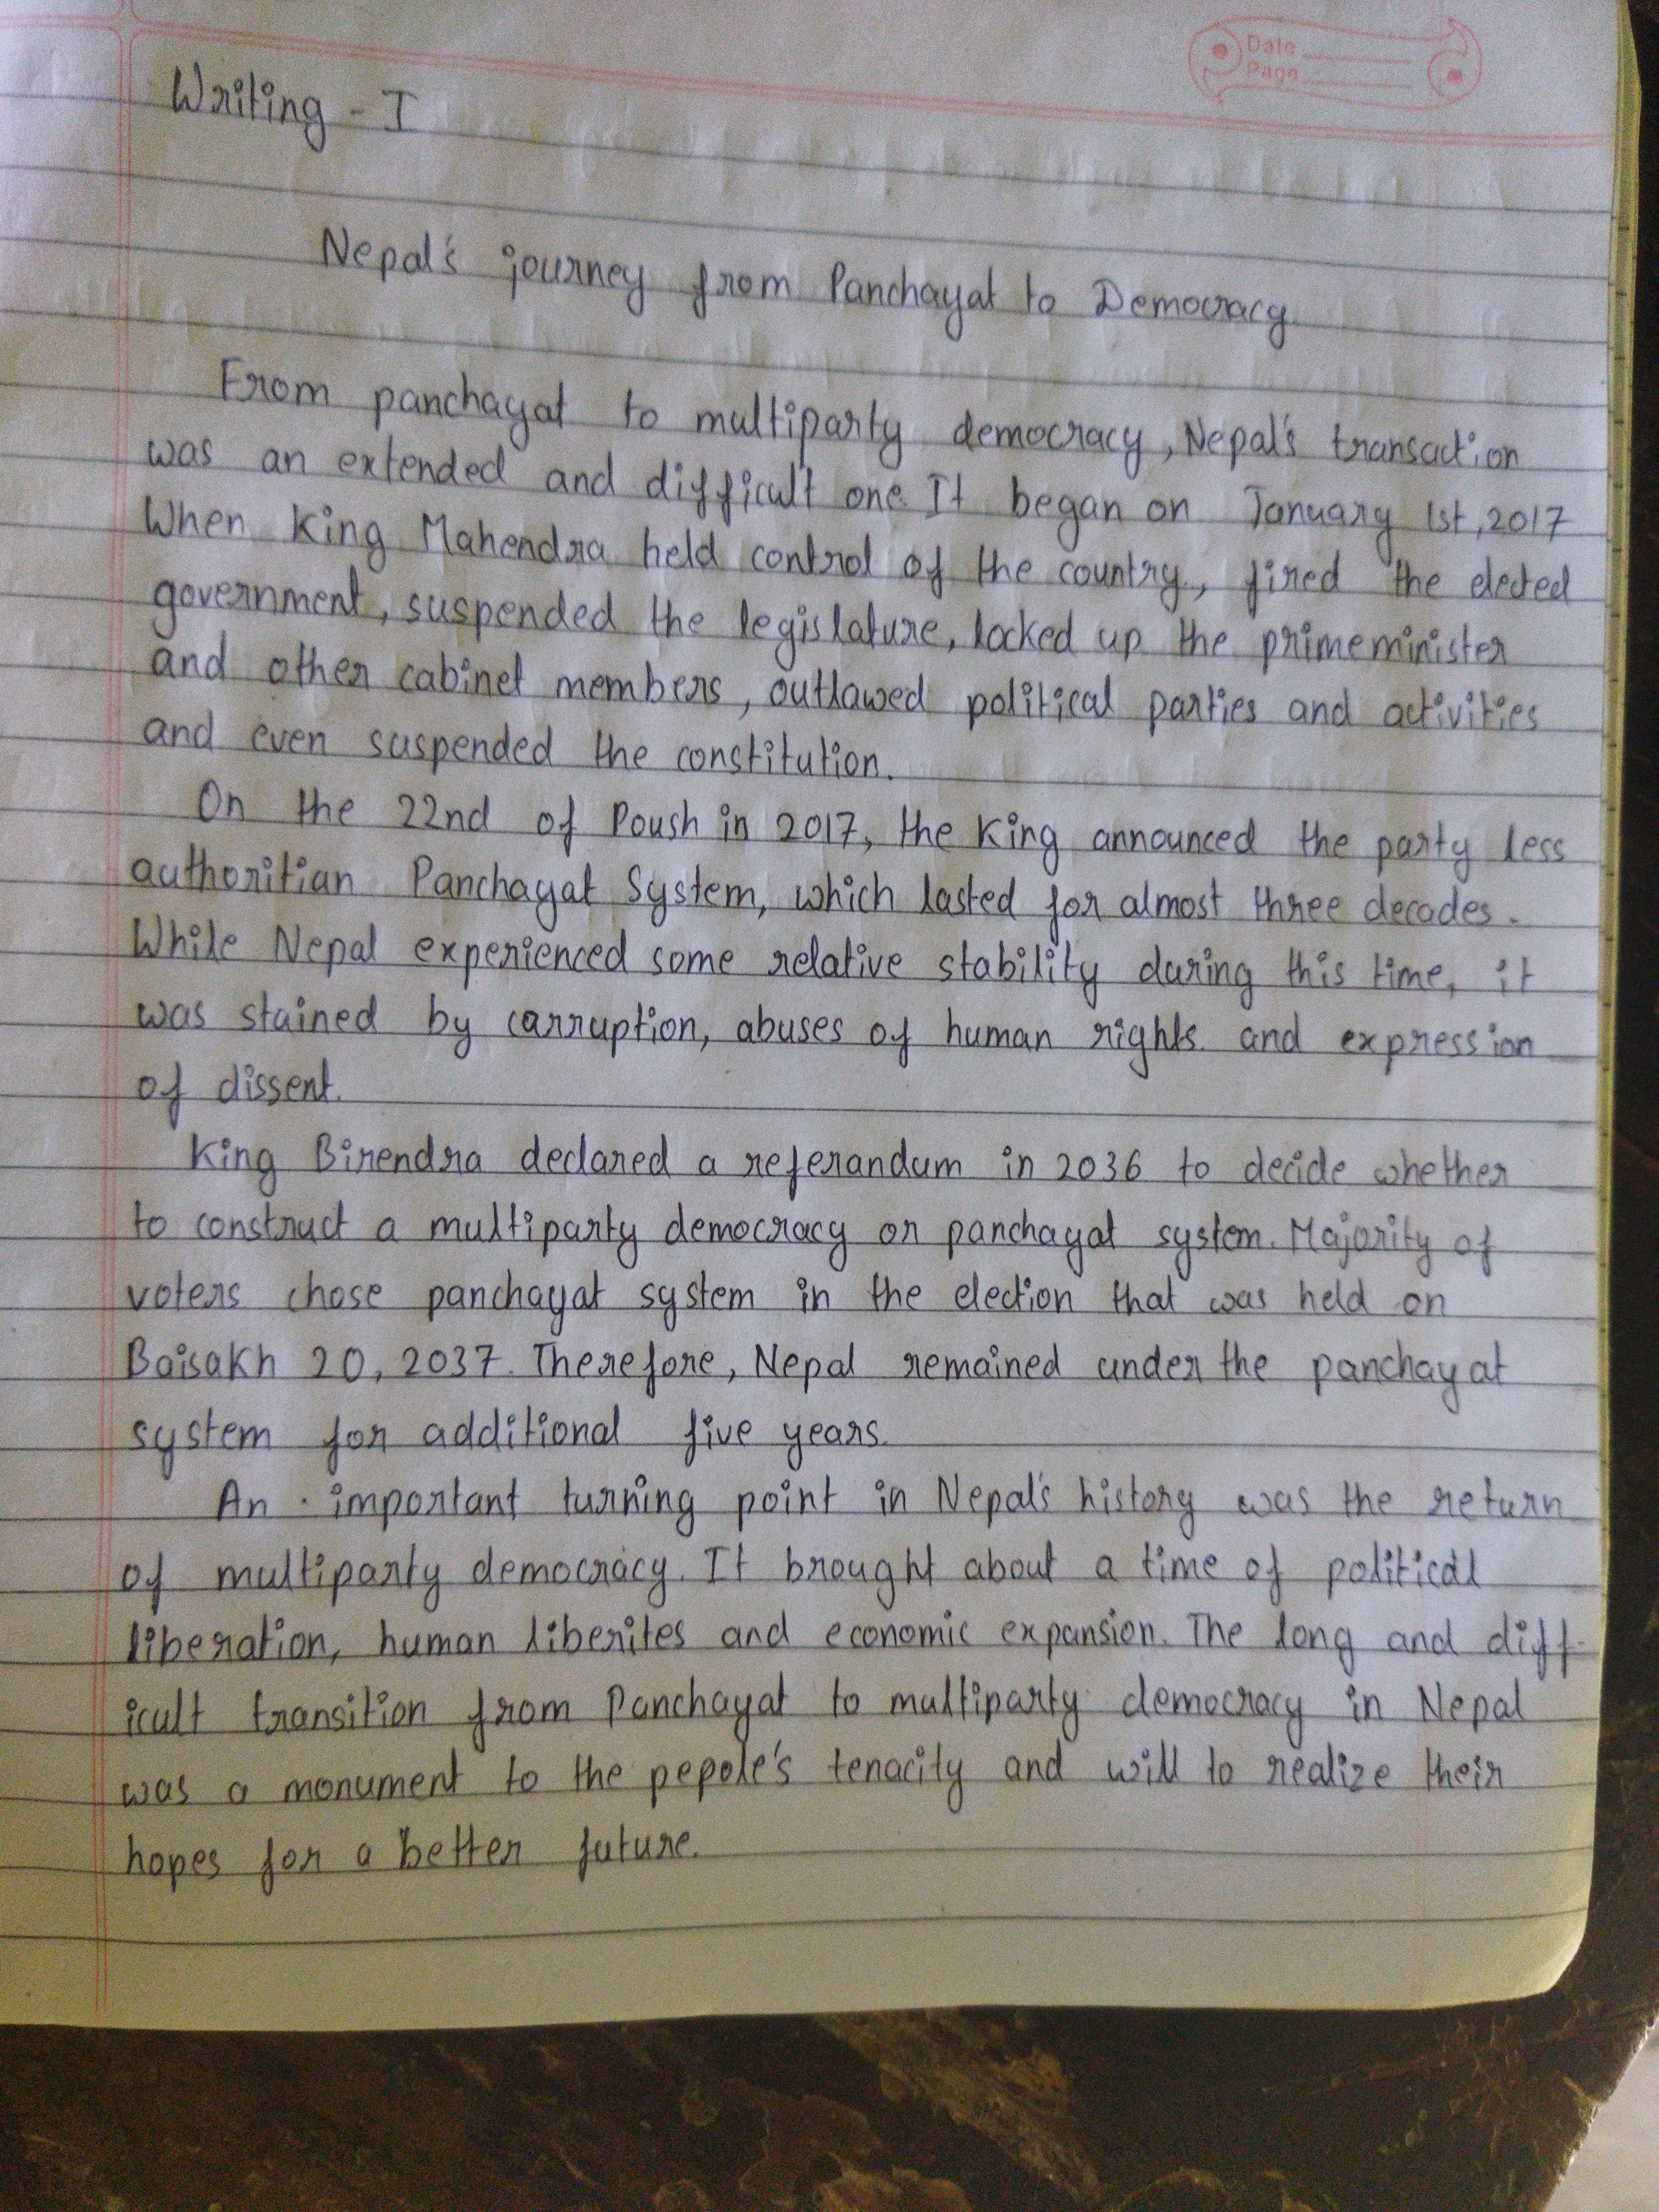 Date
Page
Writing - I
Nepal's journey from Panchayat to Democracy
From panchayat to multiparty democracy, Nepal's transaction
was an extended and difficult one. It began on January 1st, 2017
When King Mahendra held control of the country, fired the elected
government, suspended the legislature, locked up the primeminister
and other cabinet members, outlawed political parties and activities
and even suspended the constitution.
On the 22nd of Poush in 2017, the King announced the party less
authoritian Panchayat System, which lasted for almost three decades.
While Nepal experienced some relative stability during this time, it
was stained by carruption, abuses of human rights and expression
of dissent.
King Birendra declared a referandum in 2036 to decide whether
to construct a multiparty democracy or panchayat system. Majority of
voters chose panchayat system in the election that was held on
Baisakh 20, 2037. Therefore, Nepal remained under the panchayat
system for additional five years.
An important turning point in Nepal's history was the return
of multiparty democracy. It brought about a time of political
liberation, human liberites and economic expansion. The long and diff-
icult transition from Panchayat to multiparty democracy in Nepal
was a monument to the pepole's tenacity and will to realize their
hopes for a better future.